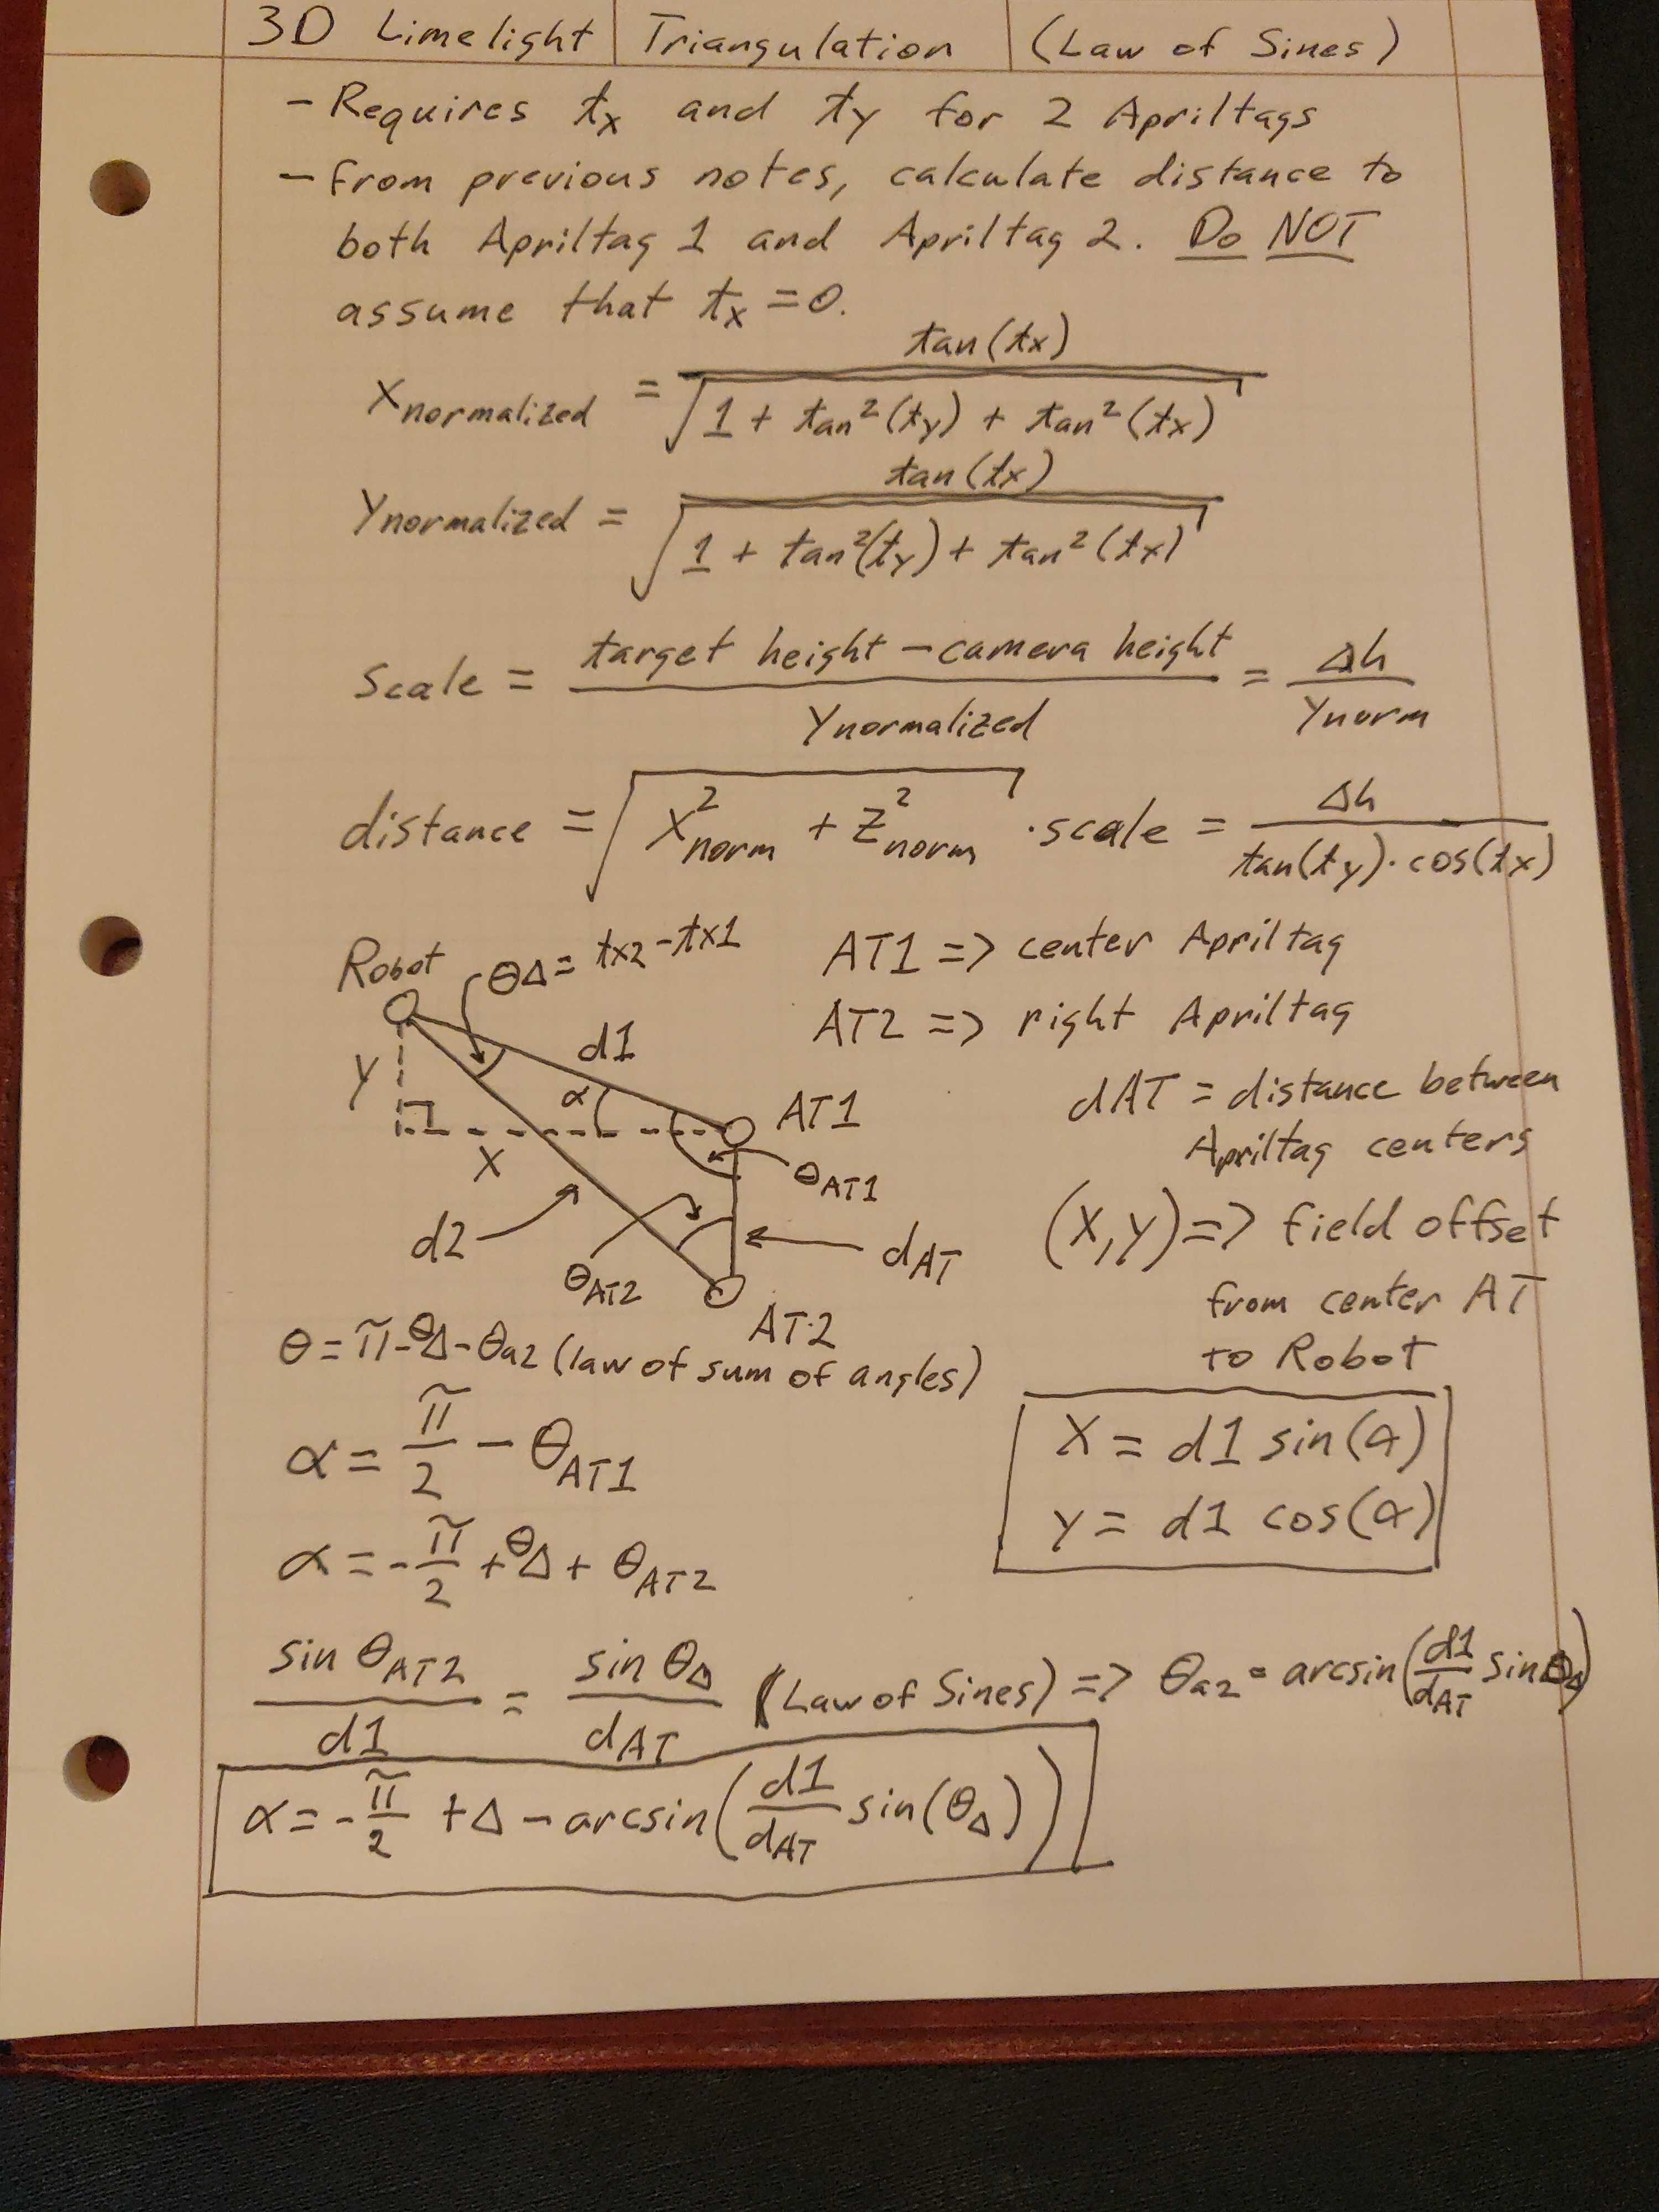 3D Limelight Triangulation (Law of Sines)
- Requires tx and ty for 2 Apriltags
- from previous notes, calculate distance to
both Apriltag 1 and Apriltag 2. Do NOT
assume that tx = 0.
Xnormalized = tan(tx) / √(1 + tan²(ty) + tan²(tx))
Ynormalized = tan(tx) / √(1 + tan²(ty) + tan²(tx))
Scale = target height - camera height / Ynormalized = Δh / Ynorm
distance = √(X²norm + Z²norm) · scale = Δh / tan(ty)·cos(tx)
Robot
θΔ = tx2 - tx1
AT1 => center Apriltag
AT2 => right Apriltag
d1
Y
α
AT1
dAT = distance between
Apriltag centers
X
θAT1
d2
dAT
θAT2
AT2
(X,Y) => field offset
from center AT
to Robot
θ = π - θΔ - θa2 (law of sum of angles)
α = π/2 - θAT1
X = d1 sin(α)
Y = d1 cos(α)
α = -π/2 + θΔ + θAT2
sin θAT2 / d1 = sin θΔ / dAT (Law of Sines) => θa2 = arcsin(d1/dAT sin θΔ)
α = -π/2 + Δ - arcsin(d1/dAT sin(θΔ))